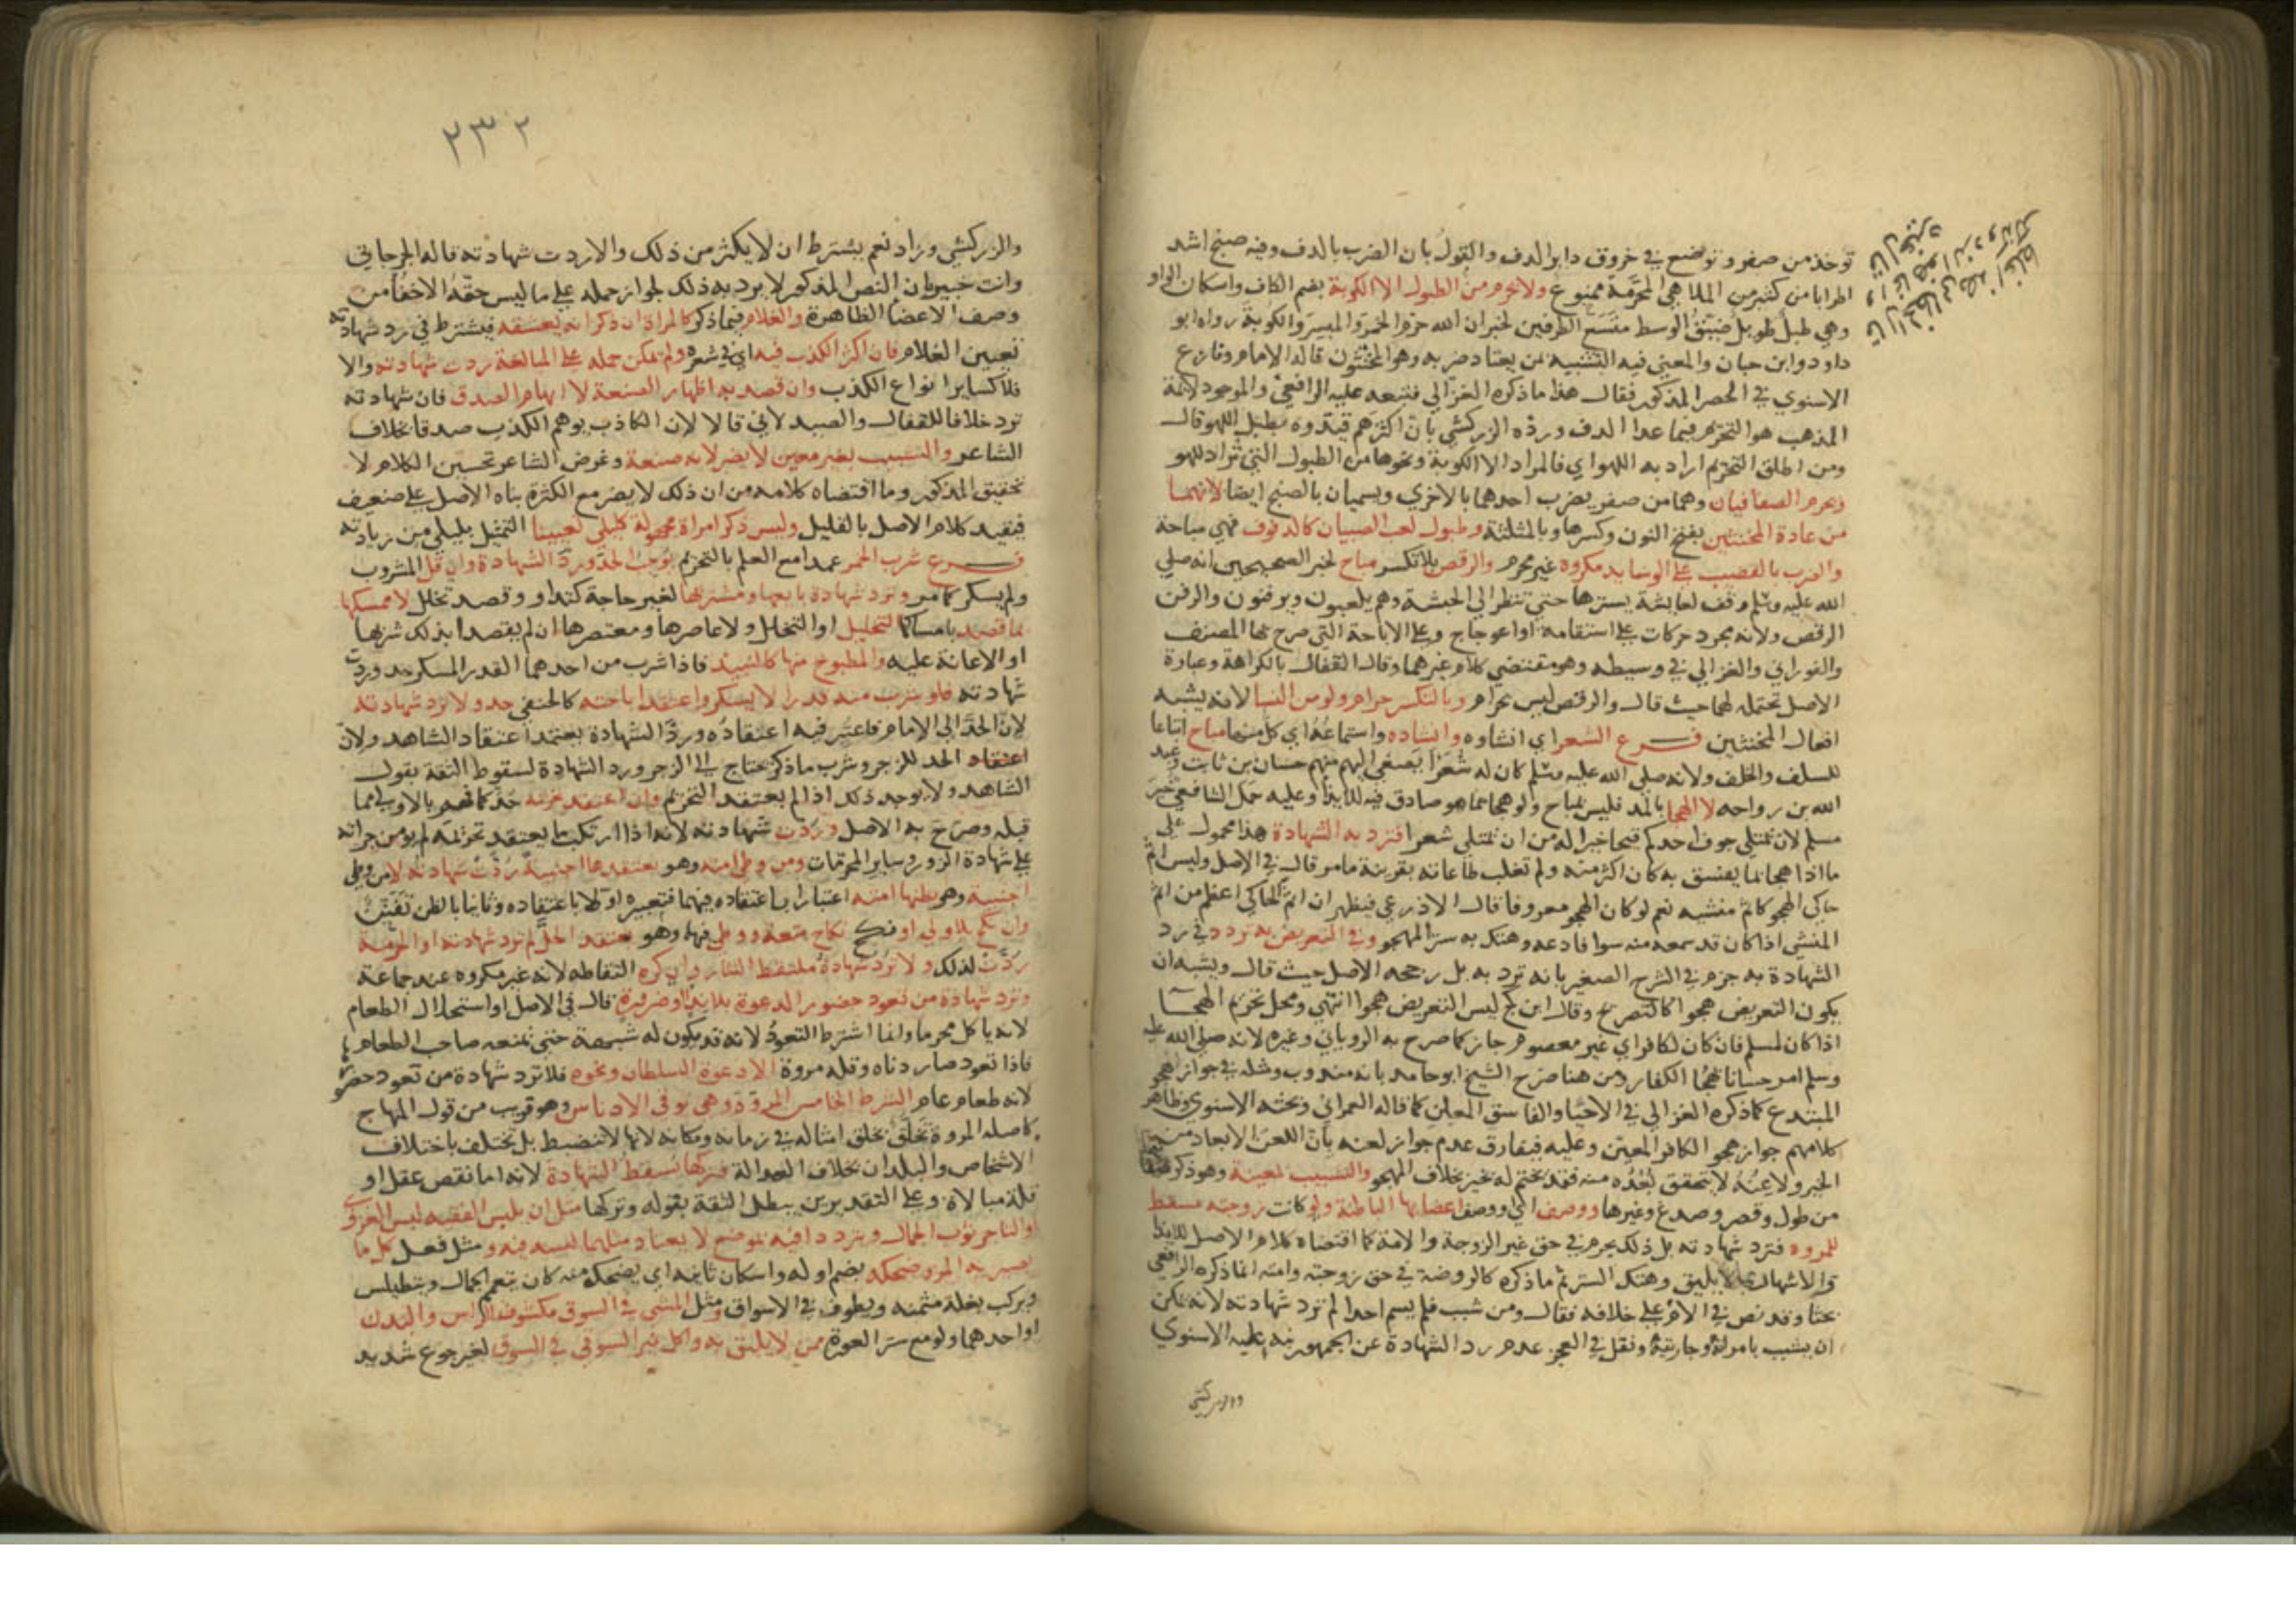 توخذ من صفر وتوضع في خروق داير الدف والقول بان الضرب بالدف وفيه صنج اشد
اطرابا من كثير من الملاهي المحرمة ممنوع ولا تحرم من الطبول الا الكوبة بضم الكاف واسكان الواو
وهي طبل طويل ضيق الوسط متسع الطرفين لخبر ان الله حرم الخمر والميسر والكوبة رواه ابو
داود وابن حبان والمعني فيه التشبيه بمن يعتاد ضربه وهو المخنثون قاله الامام ونازع
الاسنوي في الحصر المذكور فقال هذا ما ذكره الغزالي فتبعه عليه الرافعي والموجود لائمة
المذهب هو التحريم فيما عدا الدف ورده الزركشي بان اكثرهم قيدوه بطبل اللهو قال
ومن اطلق التحريم اراد به اللهو اي فالمراد الا الكوبة ونحوها من الطبول التي تراد للهو
ويحرم الصفاقيان وهما من صفر يضرب احدهما بالاخري ويسميان بالصنج ايضا لانهما
من عادة المخنثين بفتح النون وكسرها وبالمثلثة وطبول لعب الصبيان كالدفوف فهي مباحة
والضرب بالقضيب علي الوسايد مكروه غير محرم والرقص بلا تكسر مباح لخبر الصحيحين انه صلي
الله عليه وسلم وقف لعايشة يسترها حتي تنظر الي الحبشة وهم يلعبون ويزفنون والزفن
الرقص ولانه مجرد حركات علي استقامة او اعوجاج وعلي الاباحة التي صرح بها المصنف
والفوراني والغزالي في وسيطه وهو مقتضي كلام غيرهما وقال القفال بالكراهة وعبارة
الاصل تحتمله لهما حيث قال والرقص ليس بحرام وبالتكسر حرام ولو من النسا لانه يشبه
افعال المخنثين فرع الشعر اي انشاوه وانشاده واستماعه اي كل منها مباح اتباعا
للسلف والخلف ولانه صلي الله عليه وسلم كان له شعرا يصغي اليهم منهم حسان بن ثابت وعبد
الله بن رواحه لا الهجا بالمد فليس بمباح ولو هجا بما هو صادق فيه للايذا وعليه حمل الشافعي خبر
مسلم لان يمتلي جوف احدكم قيحا خير له من ان يمتلي شعرا فترد به الشهادة هذا محمول علي
ما اذا هجا بما يفسق به كان اكثر منه ولم تغلب طاعاته بقرينة ما مر قال في الاصل وليس اثم
حاكي الهجو كاثم منشيه نعم لو كان الهجو معروفا قال الاذرعي فيظهر ان اثم الحاكي اعظم من اثم
المنشي اذا كان قد سمعه منه سرا فاذاعه وهتك به ستر المهجو وفي التعريض به تردد في رد
الشهادة به جزم في الشرح الصغير بانه ترد به بل رجحه الاصل حيث قال ويشبه ان
يكون التعريض هجوا كالتصريح وقال ابن كج ليس التعريض هجوا انتهي ومحل تحريم الهجا
اذا كان لمسلم فان كان لكافر اي غير معصوم جاز كما صرح به الروياني وغيره لانه صلي الله عليه
وسلم امر حسانا بهجا الكفار ومن هنا صرح الشيخ ابو حامد بانه مندوب ومثله في جواز الهجو
المبتدع كما ذكره الغزالي في الاحيا والفاسق المعلن كما قاله العمراني وبحثه الاسنوي وظاهر
كلامهم جواز هجو الكافر المعين وعليه فيفارق عدم جواز لعنه بان اللعن الابعاد من
الخير ولاعنه لا يتحقق بعده منه فقد يختم له بخير بخلاف الهجو والتشبيب بمعينة وهو ذكر
من طول وقصر وصدغ وغيرها ووصف اعضايها الباطنة ولو كانت زوجته مسقط
للمروة فترد شهادته بل ذلك يحرم في حق غير الزوجة والامة كما اقتضاه كلام الاصل للايذا
والاشهار بما لا يليق وهتك الستر ثم ما ذكره كالروضة في حق زوجته وامته انما ذكره الرافعي
بحثا وقد نص في الام علي خلافه فقال ومن شبب فلم يسم احدا لم ترد شهادته لانه يمكن
ان يشبب بامراته وجاريته ونقل في البحر عدم رد الشهادة عن الجمهور نبه عليه الاسنوي
والزركشي
٢٣٢
والزركشي وزاد نعم يشترط ان لا يكثر من ذلك والا ردت شهادته قاله الجرجاني
وانت خبير بان النص المذكور لا يرد به ذلك لجواز حمله علي ما ليس حقه الاخفا من
وصف الاعضا الظاهرة والغلام فيما ذكر كالمراة ان ذكر انه يعشقه فيشترط في رد شهادته
تعيين الغلام فان اكثر الكذب فيه اي في شعره ولم يمكن حمله علي المبالغة ردت شهادته والا
فلا كساير انواع الكذب وان قصد به اظهار الصنعة لا ايهام الصدق فان شهادته
ترد خلافا للقفال والصيدلاني قالا لان الكاذب يوهم الكذب صدقا بخلاف
الشاعر والتشبيب بغير معين لا يضر لانه صنعة وغرض الشاعر تحسين الكلام لا
تحقيق المذكور وما اقتضاه كلامه من ان ذلك لا يضر مع الكثرة بناه الاصل علي ضعيف
فيقيد كلام الاصل بالقليل وليس ذكر امراة مجهولة كليلي تعيينا التمثيل بليلي من زيادته
فرع شرب الخمر عمدا مع العلم بالتحريم يوجب الحد ورد الشهادة وان قل المشروب
ولم يسكر كما مر وترد شهادة بايعها ومشتريها لغير حاجة كتداو وقصد تخلل لا ممسكها
بما قصد بامساكها التخليل او التخلل ولا عاصرها ومعتصرها ان لم يقصدا بذلك شربها
او الاعانة عليه والمطبوخ منها كالنبيذ فاذا شرب من احدهما القدر المسكر حد وردت
شهادته فلو شرب منه قدرا لا يسكر واعتقد اباحته كالحنفي حد ولا ترد شهادته
لان الحد الي الامام فاعتبر فيه اعتقاده ورد الشهادة يعتمد اعتقاد الشاهد ولان
الحد للزجر وشرب ما ذكر يحتاج الي الزجر ورد الشهادة لسقوط الثقة بقول
الشاهد ولا يوجد ذلك اذا لم يعتقد التحريم وان اعتقد تحريمه حد كما فهم بالاولي مما
قبله وصرح به الاصل وردت شهادته لانه اذا ارتكب ما يعتقد تحريمه لم يومن جراته
علي شهادة الزور وساير المحرمات ومن وطي امته وهو يعتقدها اجنبية ردت شهادته لا من وطي
اجنبية وهو يظنها امته اعتبارا باعتقاده فيهما
وان نكح بلا ولي او نكح نكاح متعة ووطي فيها وهو يعتقد الحل لم ترد شهادته او الحرمة
ردت لذلك ولا ترد شهادة ملتقط النثار وان كره التقاطه لانه غير مكروه عند جماعة
وترد شهادة من تعود حضور الدعوة بلا ندا وضرورة قال في الاصل او استحلال الطعام
لانه ياكل محرما وانما اشترط التعود لانه قد يكون له شبهة حتي يمنعه صاحب الطعام
فاذا تعود صار دناه وقلة مروة الا دعوة السلطان ونحوه فلا ترد شهادة من تعود حضورها
لانه طعام عام الشرط الخامس المروة وهي توقي الادناس وهو قريب من قول المنهاج
كاصله المروة تخلق بخلق امثاله في زمانه ومكانه لانها لا تنضبط بل تختلف باختلاف
الاشخاص والبلدان بخلاف العدالة فتركها يسقط الشهادة لانه اما نقص عقل او
قلة مبالاة وعلي التقديرين يبطل الثقة بقوله وتركها مثل ان يلبس الفقيه لبس
او التاجر ثوب الجمال ويتردد فيه بموضع لا يعتاد مثلهما لبسه فيه ومثل فعل كل ما
يصير به المرء ضحكه بضم اوله واسكان ثانيه اي يضحك منه كان يتعمم الجمال ويتطيلس
ويركب بغلة مثمنه ويطوف في الاسواق ومثل المشي في السوق مكشوف الراس والبدن
او احدهما ولو مع ستر العورة ممن لا يليق به واكل غير السوقي في السوق لغير جوع شديد